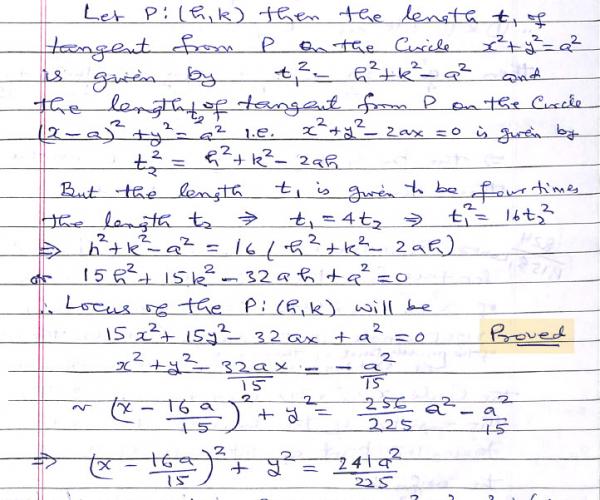 Let P:(h,k) then the length t₁ of
tangent from P on the Circle x²+y²=a²
is given by t₁² = h²+k²-a² and
the length t₂ of tangent from P on the Circle
(x-a)²+y²=a² i.e. x²+y²-2ax=0 is given by
t₂² = h²+k²-2ah
But the length t₁ is given to be four times
the length t₂ ⇒ t₁=4t₂ ⇒ t₁²=16t₂²
⇒ h²+k²-a² = 16(h²+k²-2ah)
or 15h²+15k²-32ah+a²=0
∴ Locus of the P:(h,k) will be
15x²+15y²-32ax+a²=0 Proved
x²+y²-32ax/15 = -a²/15
~ (x-16a/15)²+y² = 256/225 a² - a²/15
⇒ (x-16a/15)²+y² = 241a²/225